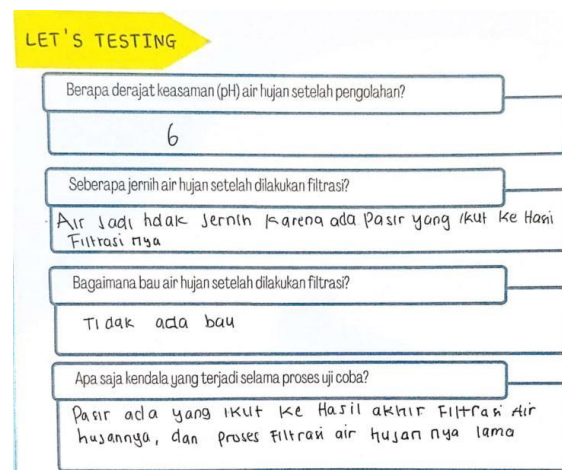 LET'S TESTING
Berapa derajat keasaman (pH) air hujan setelah pengolahan?
6
Seberapa jernih air hujan setelah dilakukan filtrasi?
Air Jadi tidak Jernih karena ada Pasir yang ikut ke Hasil
Filtrasi nya
Bagaimana bau air hujan setelah dilakukan filtrasi?
Tidak ada bau
Apa saja kendala yang terjadi selama proses uji coba?
Pasir ada yang ikut ke Hasil akhir Filtrasi Air
hujannya, dan proses Filtrasi air hujan nya lama